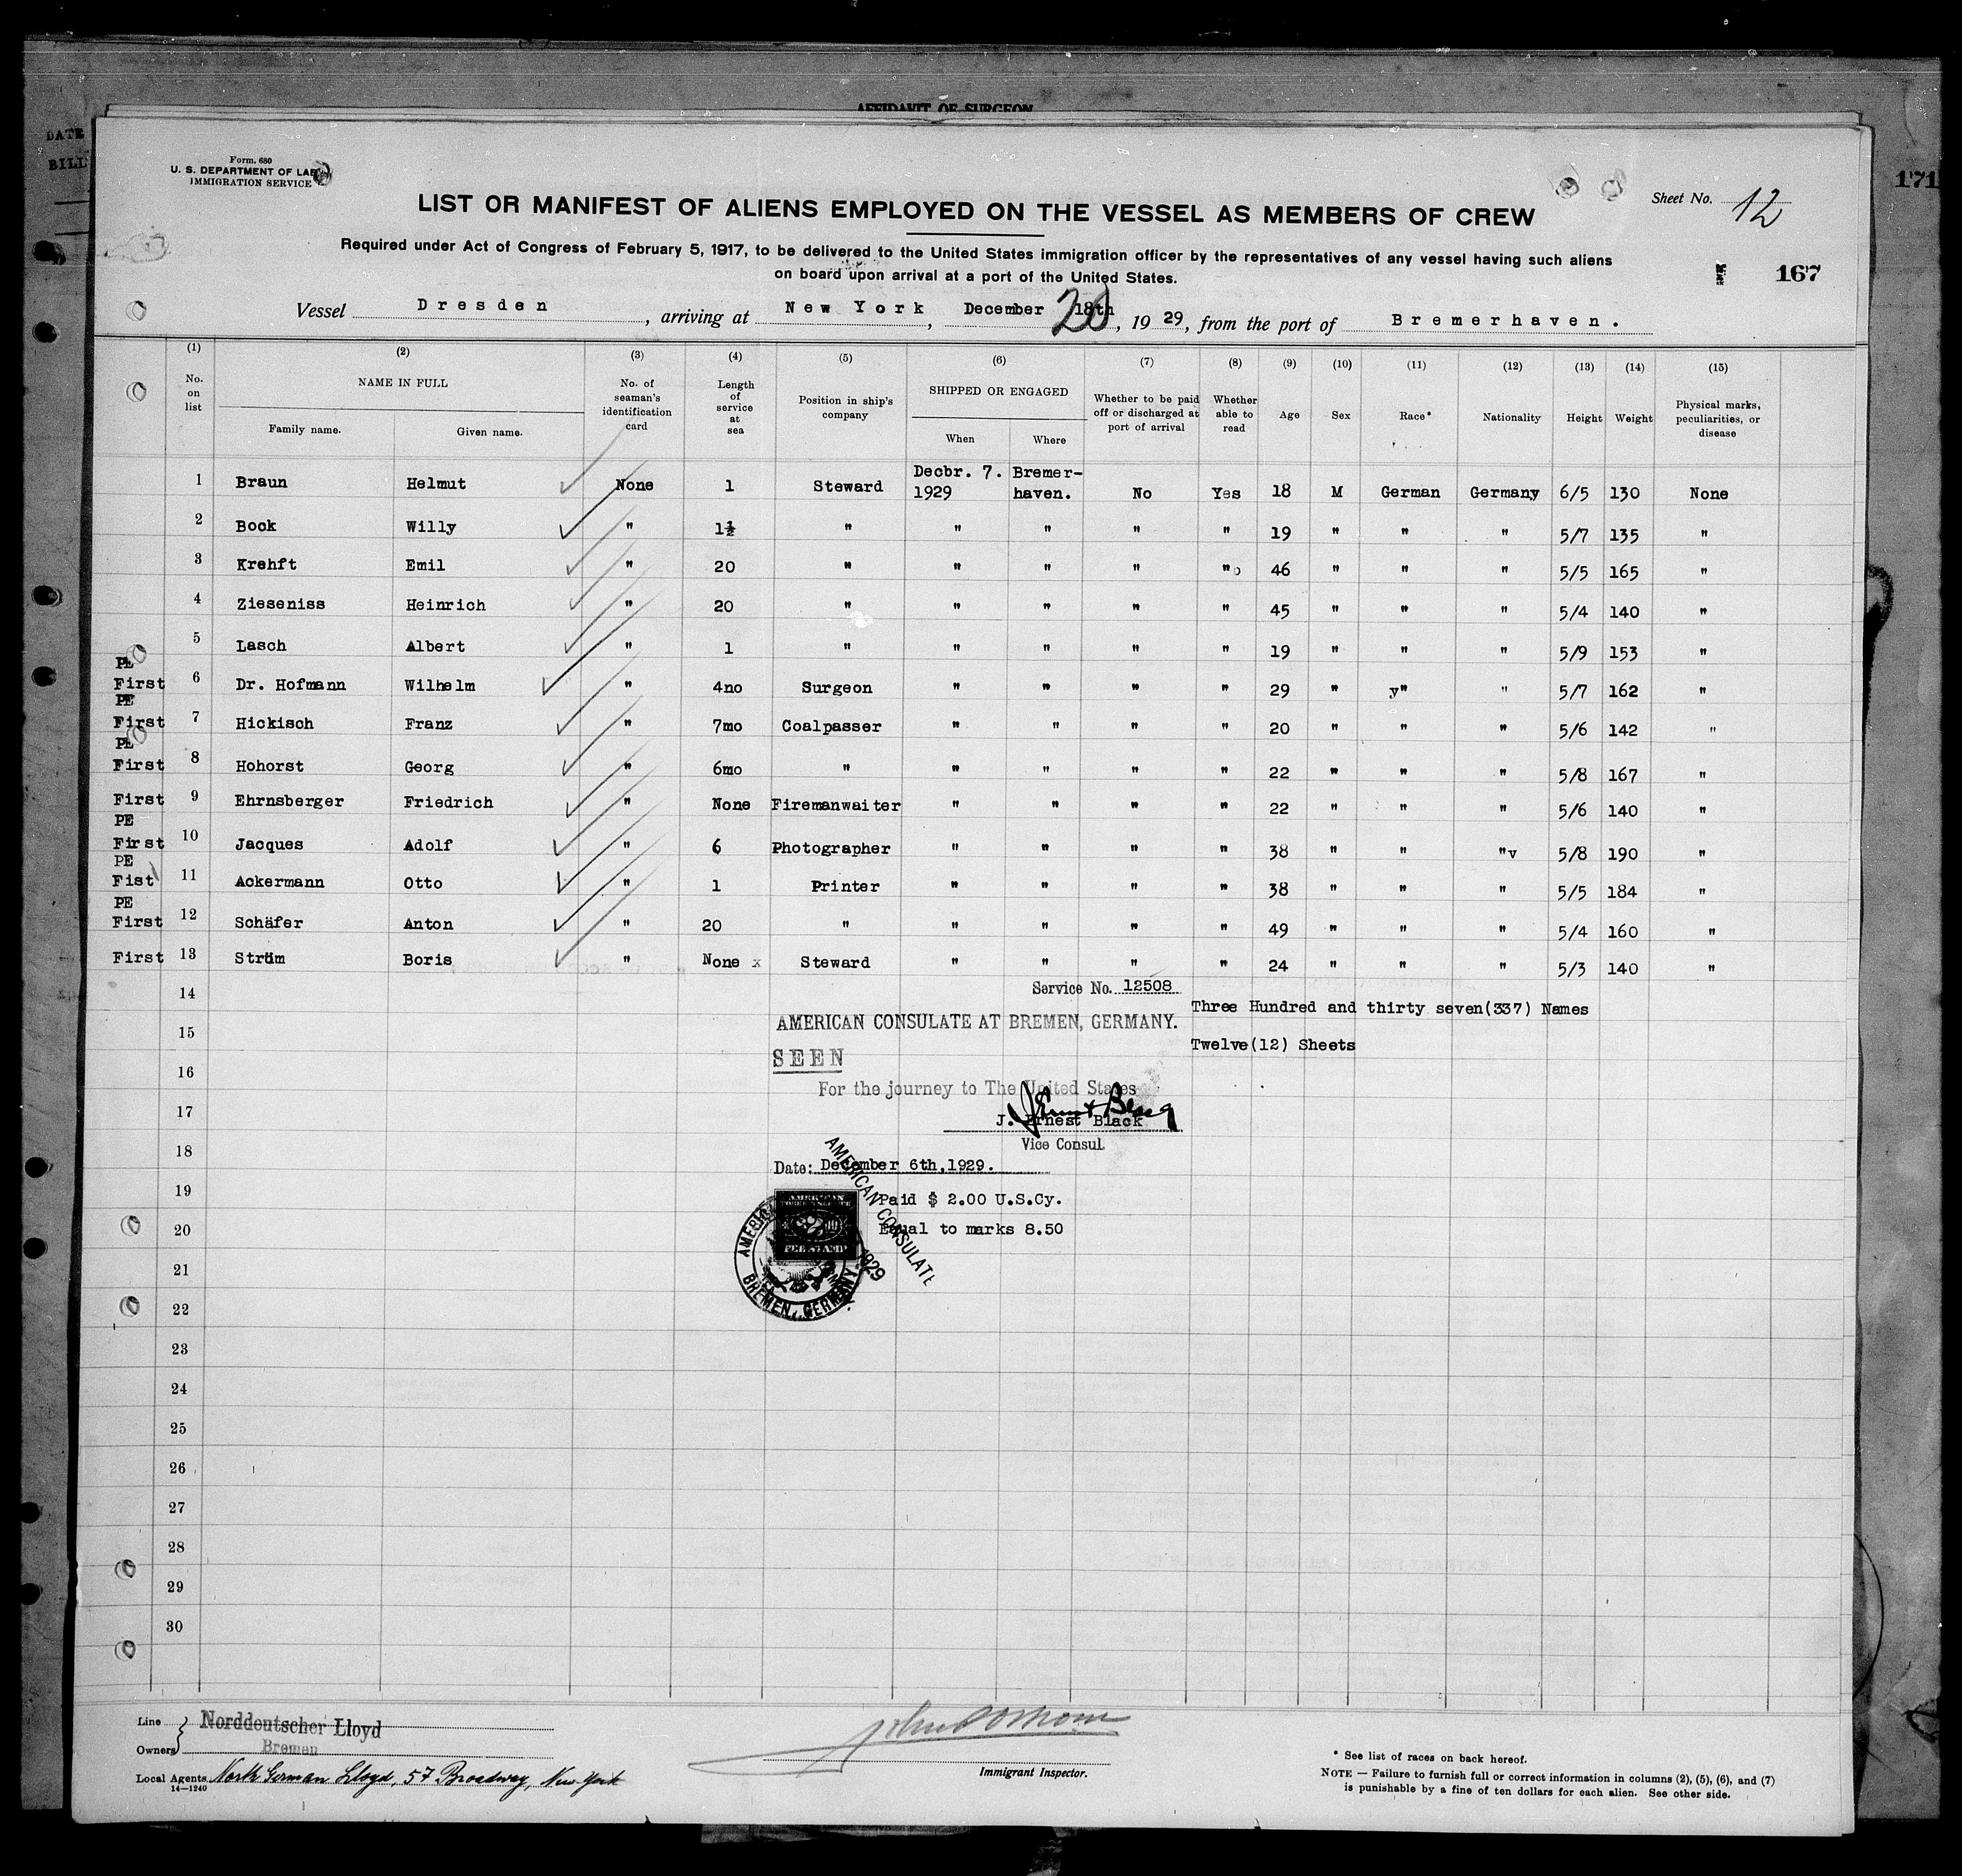 AFFIDAVIT OF SURGEON
DATE
BILL
171
Form. 680
U. S. DEPARTMENT OF LAB
IMMIGRATION SERVICE
Sheet No. 12
LIST OR MANIFEST OF ALIENS EMPLOYED ON THE VESSEL AS MEMBERS OF CREW
Required under Act of Congress of February 5, 1917, to be delivered to the United States immigration officer by the representatives of any vessel having such aliens
on board upon arrival at a port of the United States.
167
Vessel Dresden, arriving at New York, December 18th 20, 1929, from the port of Bremerhaven.
(1) (2) (3) (4) (5) (6) (7) (8) (9) (10) (11) (12) (13) (14) (15)
No. on list NAME IN FULL Family name. Given name. No. of seaman's identification card Length of service at sea Position in ship's company SHIPPED OR ENGAGED When Where Whether to be paid off or discharged at port of arrival Whether able to read Age Sex Race* Nationality Height Weight Physical marks, peculiarities, or disease
1 Braun Helmut None 1 Steward Decbr. 7. 1929 Bremer-haven. No Yes 18 M German Germany 6/5 130 None
2 Bock Willy " 1½ " " " " " 19 " " " 5/7 135 "
3 Krehft Emil " 20 " " " " " 46 " " " 5/5 165 "
4 Zieseniss Heinrich " 20 " " " " " 45 " " " 5/4 140 "
5 Lasch Albert " 1 " " " " " 19 " " " 5/9 153 "
PE
First 6 Dr. Hofmann Wilhelm " 4no Surgeon " " " " 29 " y" " 5/7 162 "
PE
First 7 Hickisch Franz " 7mo Coalpasser " " " " 20 " " " 5/6 142 "
PE
First 8 Hohorst Georg " 6mo " " " " " 22 " " " 5/8 167 "
First 9 Ehrnsberger Friedrich " None Firemanwaiter " " " " 22 " " " 5/6 140 "
PE
First 10 Jacques Adolf " 6 Photographer " " " " 38 " " "v 5/8 190 "
PE
Fist 11 Ackermann Otto " 1 Printer " " " " 38 " " " 5/5 184 "
PE
First 12 Schäfer Anton " 20 " " " " " 49 " " " 5/4 160 "
First 13 Ström Boris " None x Steward " " " " 24 " " " 5/3 140 "
14
15
16
17
18
19
20
21
22
23
24
25
26
27
28
29
30
Service No. 12508
Three Hundred and thirty seven(337) Names
AMERICAN CONSULATE AT BREMEN, GERMANY.
Twelve(12) Sheets
SEEN
For the journey to The United States
J. Ernest Black
J. Ernest Black
Vice Consul
Date: December 6th,1929.
Paid $ 2.00 U.S.Cy.
Equal to marks 8.50
AMERICAN CONSULATE
1929
AMERICAN
FEE STAMP
BREMEN, GERMANY.
Line Norddeutscher Lloyd
Owners Bremen
Local Agents North German Lloyd, 57 Broadway, New York
14—1240
Immigrant Inspector.
* See list of races on back hereof.
NOTE — Failure to furnish full or correct information in columns (2), (5), (6), and (7)
is punishable by a fine of ten dollars for each alien. See other side.